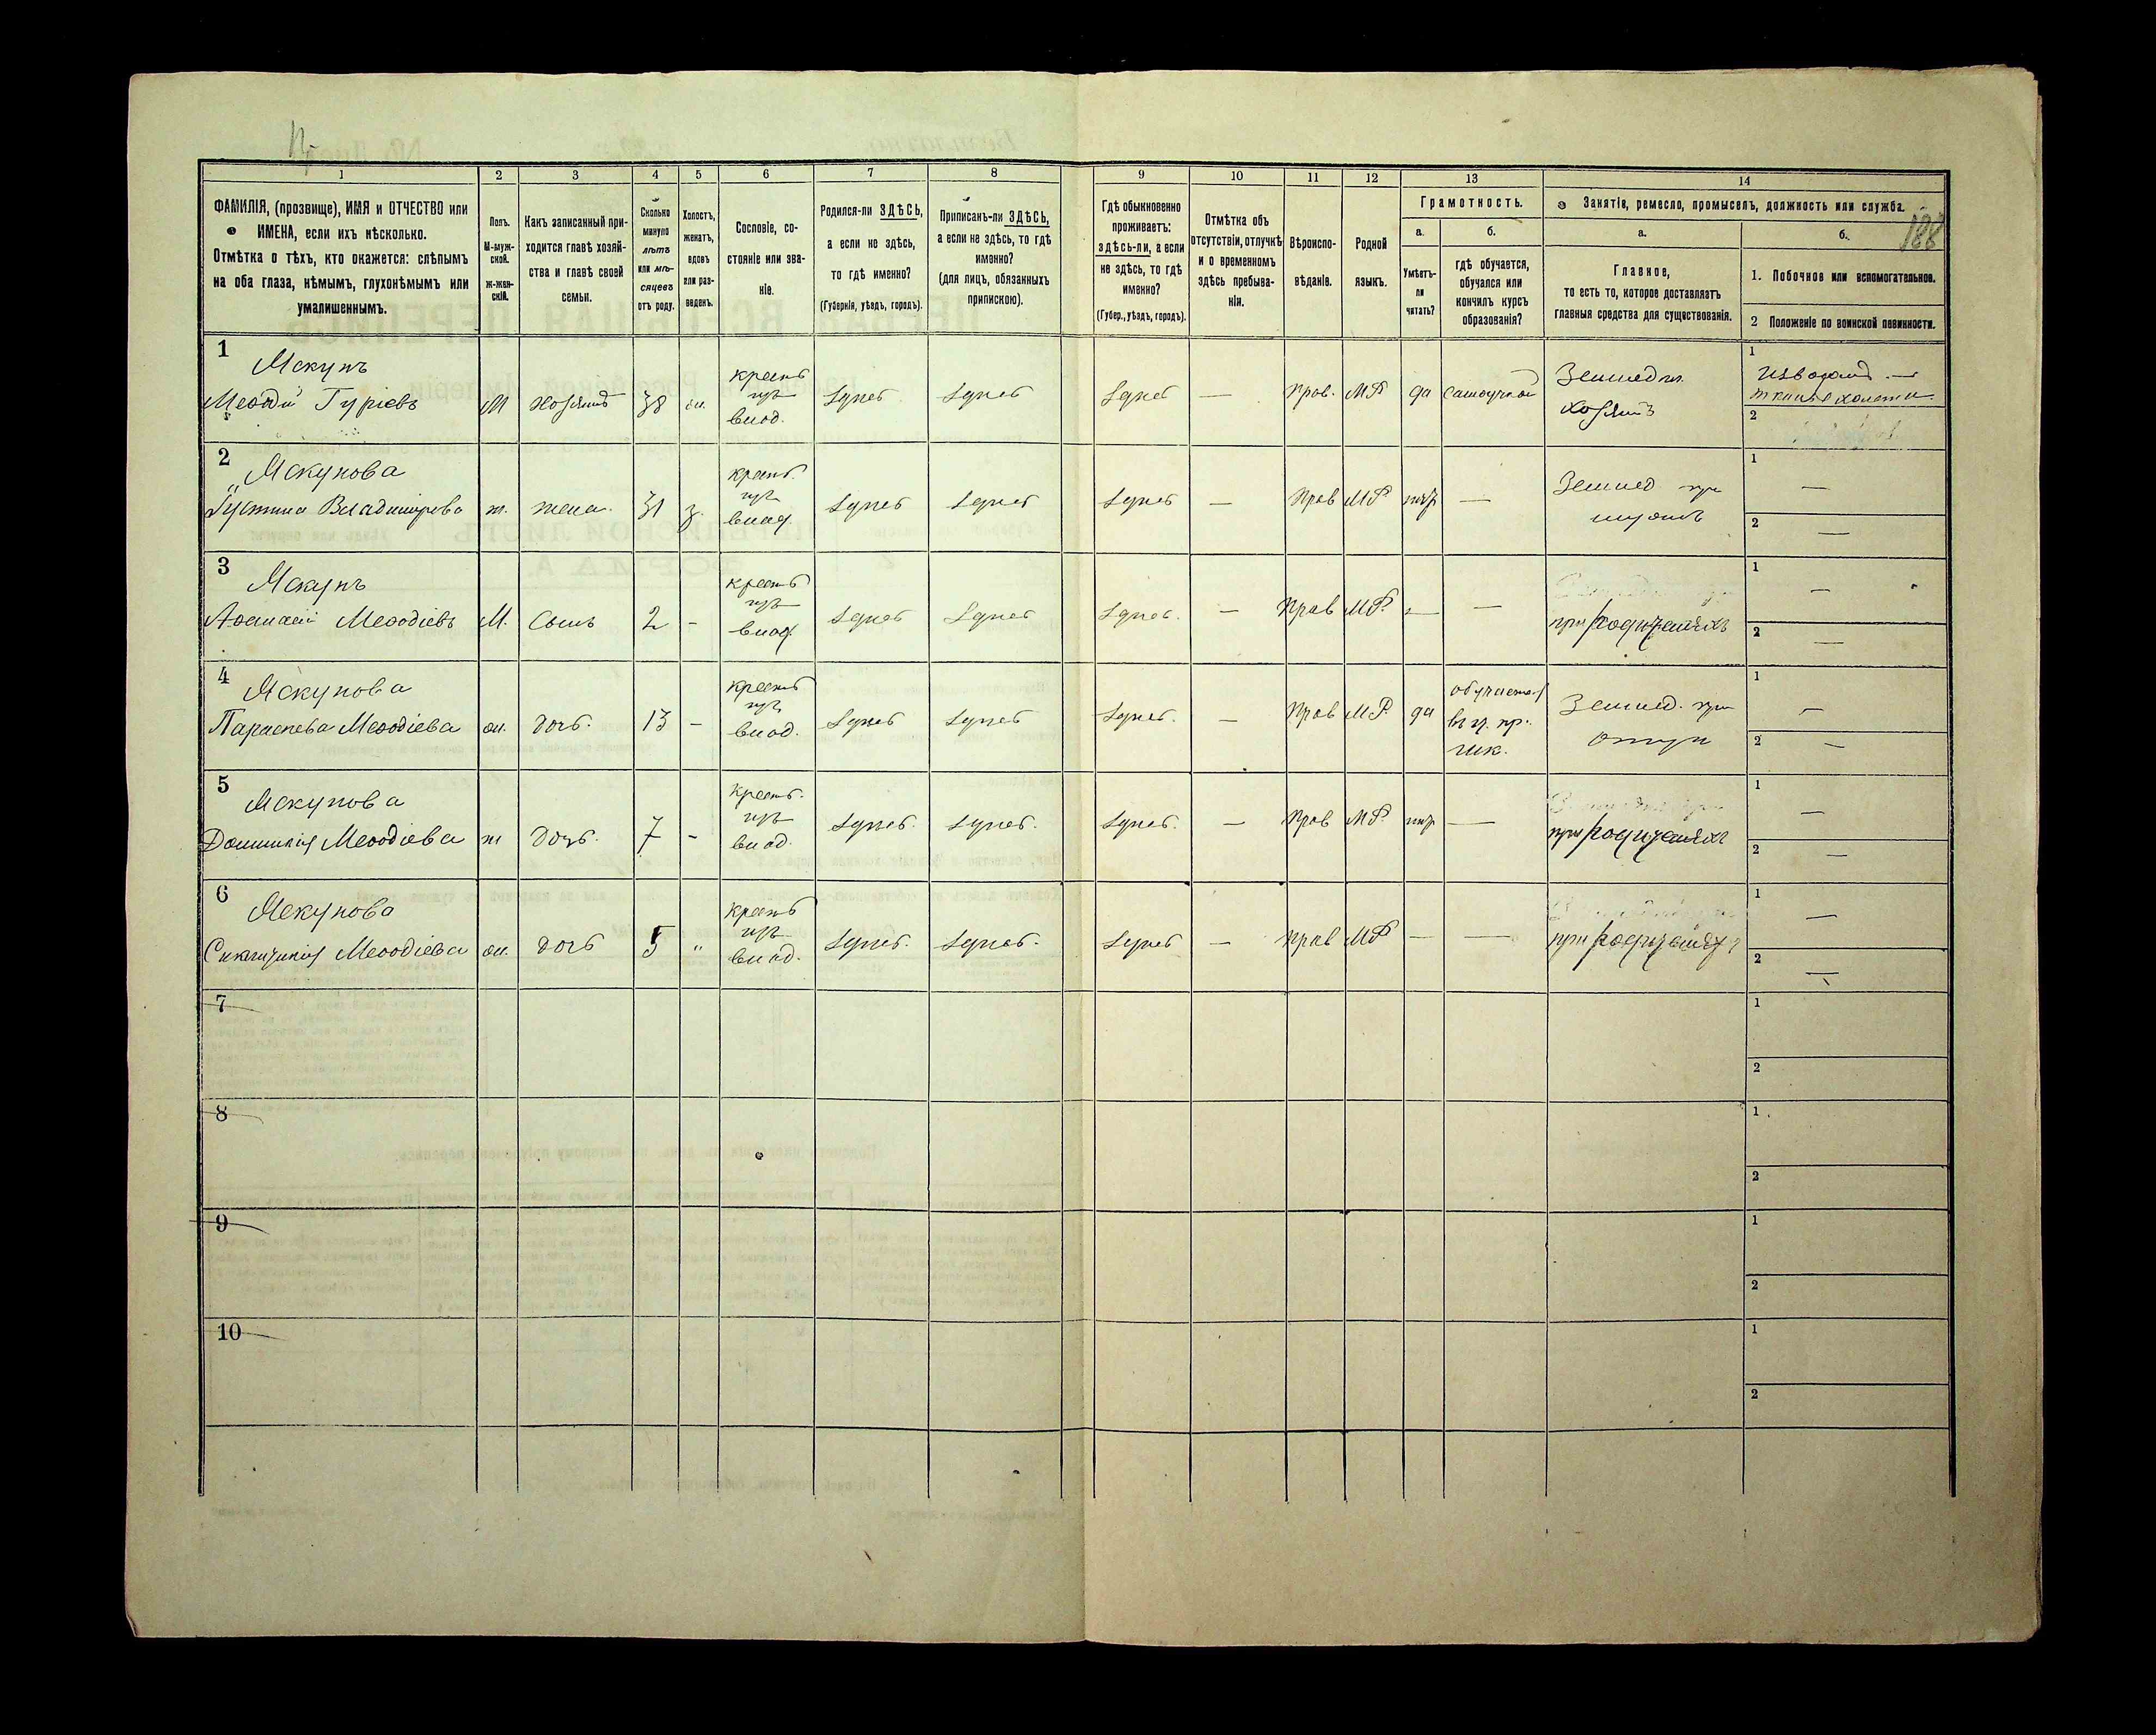 1 2 3 4 5 6 7 8 9 10 11 12 13 14
ФАМИЛІЯ, (прозвище), ИМЯ и ОТЧЕСТВО или
ИМЕНА, если ихъ нѣсколько.
Отмѣтка о тѣхъ, кто окажется: слѣпымъ
на оба глаза, нѣмымъ, глухонѣмымъ или
умалишеннымъ.
Полъ.
М-муж-
ской.
Ж-жен-
скій.
Какъ записанный при-
ходится главѣ хозяй-
ства и главѣ своей
семьи.
Сколько
минуло
лѣтъ
или мѣ-
сяцевъ
отъ роду.
Холостъ,
женатъ,
вдовъ
или раз-
веденъ.
Сословіе, со-
стояніе или зва-
ніе.
Родился-ли ЗДѢСЬ,
а если не здѣсь,
то гдѣ именно?
(Губернія, уѣздъ, городъ).
Приписанъ-ли ЗДѢСЬ,
а если не здѣсь, то гдѣ
именно?
(для лицъ, обязанныхъ
припискою).
Гдѣ обыкновенно
проживаетъ:
здѣсь-ли, а если
не здѣсь, то гдѣ
именно?
(Губер., уѣздъ, городъ).
Отмѣтка объ
отсутствіи, отлучкѣ
и о временномъ
здѣсь пребыва-
ніи.
Вѣроиспо-
вѣданіе.
Родной
языкъ.
Грамотность.
а.
Умѣетъ-
ли
читать?
б.
гдѣ обучается,
обучался или
кончилъ курсъ
образованія?
Занятіе, ремесло, промыселъ, должность или служба.
188
а.
Главное,
то есть то, которое доставляетъ
главныя средства для существованія.
б.
1. Побочное или вспомогательное.
2 Положеніе по воинской повинности.
1
Мскупъ
Меѳодій Гуріевъ М хозяинъ 38 крест из влад. здѣсь здѣсь здѣсь — Прав. МР да самоучкой
хозяинъ
1
2
2
Мскупова
Устина Владимірова ж. жена. 31 з. крест. из влад. здѣсь здѣсь здѣсь — Прав МР. —
Землед при
1 —
2 —
3
Мскупъ
Аѳанасій Меѳодіевъ М. Сынъ 2 - крест из влад здѣсь здѣсь здѣсь. — Прав МР. — —
при родителяхъ
1 —
2 —
4
Мскупова
Параскева Меѳодіева ж. дочь. 13 - крест из влад. здѣсь здѣсь здѣсь. — Прав МР. да
Землед. при
отцѣ
1 —
2 —
5
Мскупова
Домникія Меѳодіева ж дочь. 7 - крест. из влад. здѣсь. здѣсь. здѣсь. — Прав МР. —
при родителяхъ
1 —
2 —
6
Мскупова
Меѳодіева ж. дочь 5 „ крест из влад. здѣсь. здѣсь. здѣсь — Прав МР — —
при родителяхъ
1 —
2 —
7
1
2
8
1
2
9
1
2
10
1
2